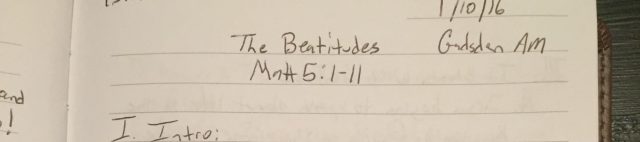 1/10/16
The Beatitudes Gadsden AM
Matt 5:1-11
and
!
I. Intro: